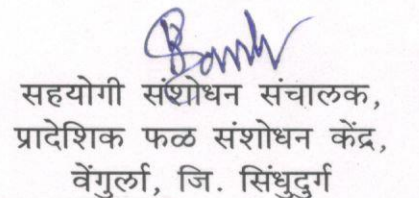 सहयोगी संशोधन संचालक,
प्रादेशिक फळ संशोधन केंद्र,
वेंगुर्ला, जि. सिंधुदुर्ग